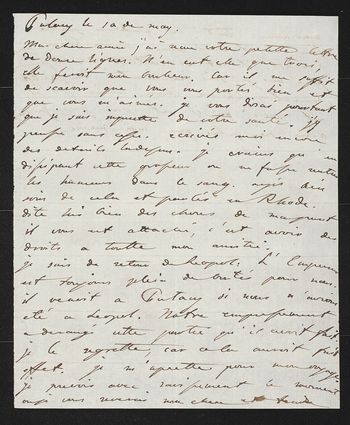 Pulawy le 10 de may.
Ma chere amie j'ai reçu votre petite lettre
de douze lignes. N'en eut elle que trois,
elle feroit mon bonheur. Car il me suffit
de scavoir que vous vous portés bien et
que vous m'aimes. je vous dirai pourtant
que je suis inquiette de votre santé. j'y
pense sans cesse. ecrivés moi encore
des details la dessus. je crains qu'en
dissipant cette grosseur on ne fasse rentrer
les humeurs dans le sang. ayés bien
soin de cela et parlés en a Rhode.
dite lui bien des choses de ma part
il vous est attaché, c'est avoir des
droits a toutte mon amitié.
je suis de retour de Leopol. L'Empereur
est toujours plein de bonté pour nous.
il venoit a Pulawy si nous n'avions
été a Leopol. Notre empressement
a derangé cette partie qu'il avoit fait
je le regrette, car cela auroit fait
effet. je m'aprette pour mon voyage
je prevois avec ravissement le moment
ou je vous reverrai ma chere et tendre